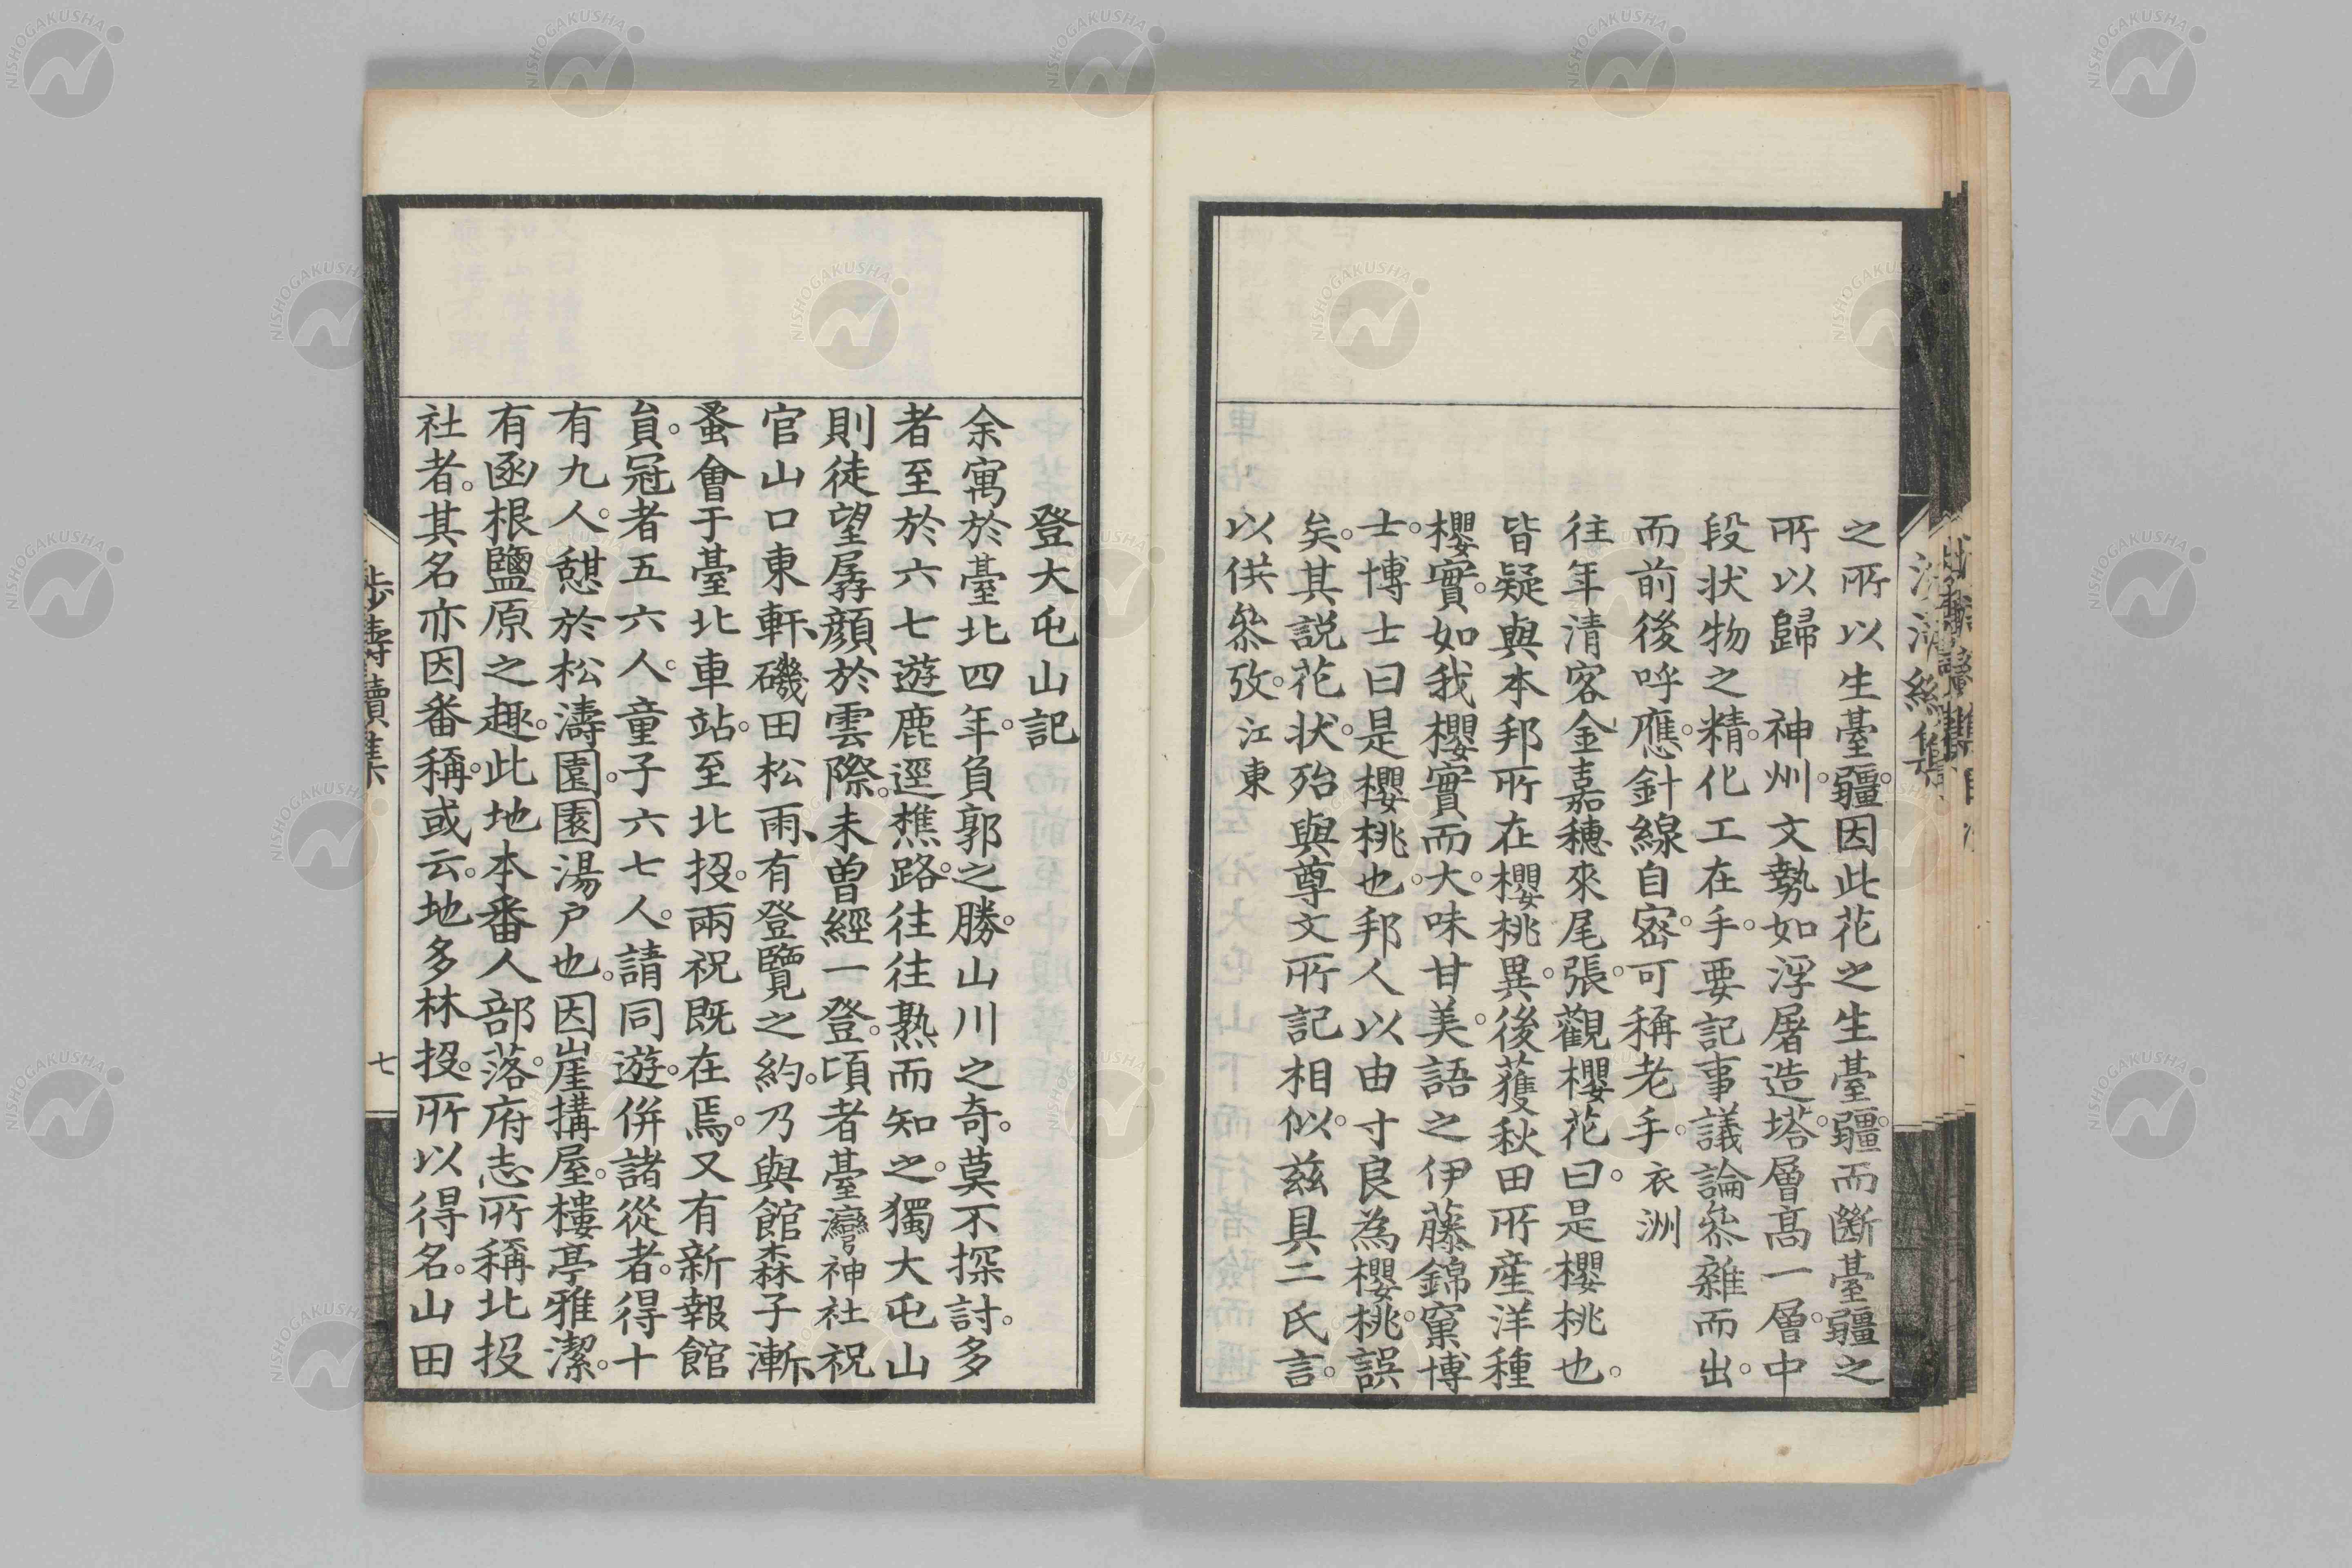 之所以生臺疆。因此花之生臺疆。而斷臺疆之
所以歸　神州。文勢如浮屠造塔。層高一層。中
段状物之精。化工在手。要記事議論叅雜而出。
而前後呼應。針線自密。可稱老手。衣洲
往年清客金嘉穗來尾張。觀櫻花。曰是櫻桃也。
皆疑與本邦所在櫻桃異。後獲秋田所産洋種
櫻實。如我櫻實而大。味甘美。語之伊藤錦窠博
士。博士曰是櫻桃也。邦人以由寸良為櫻桃。誤
矣。其説花状。殆與尊文所記相似。茲具二氏言。
以供叅攷。江東
登大屯山記
余寓於臺北四年。負郭之勝。山川之奇。莫不探討。多
者至於六七遊。鹿逕樵路。往往熟而知之。獨大屯山
則徒望孱顔於雲際。未曽經一登。頃者臺灣神社祝
官山口東軒、磯田松雨、有登覽之約。乃與館森子漸、
蚤會于臺北車站。至北投。兩祝既在焉。又有新報館
員。冠者五六人。童子六七人。請同遊。併諸從者。得十
有九人。憩於松濤園。園湯戸也。因崖搆屋。樓亭雅潔。
有函根鹽原之趣。此地本番人部落。府志所稱北投
社者。其名亦因番稱。或云。地多林投。所以得名。山田
七